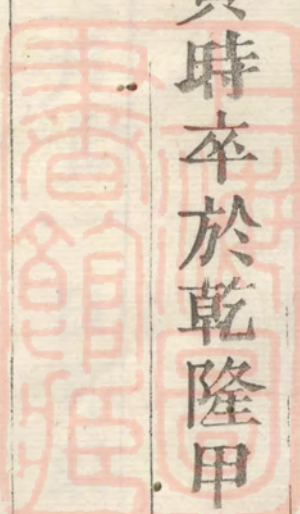 時卒於乾隆甲